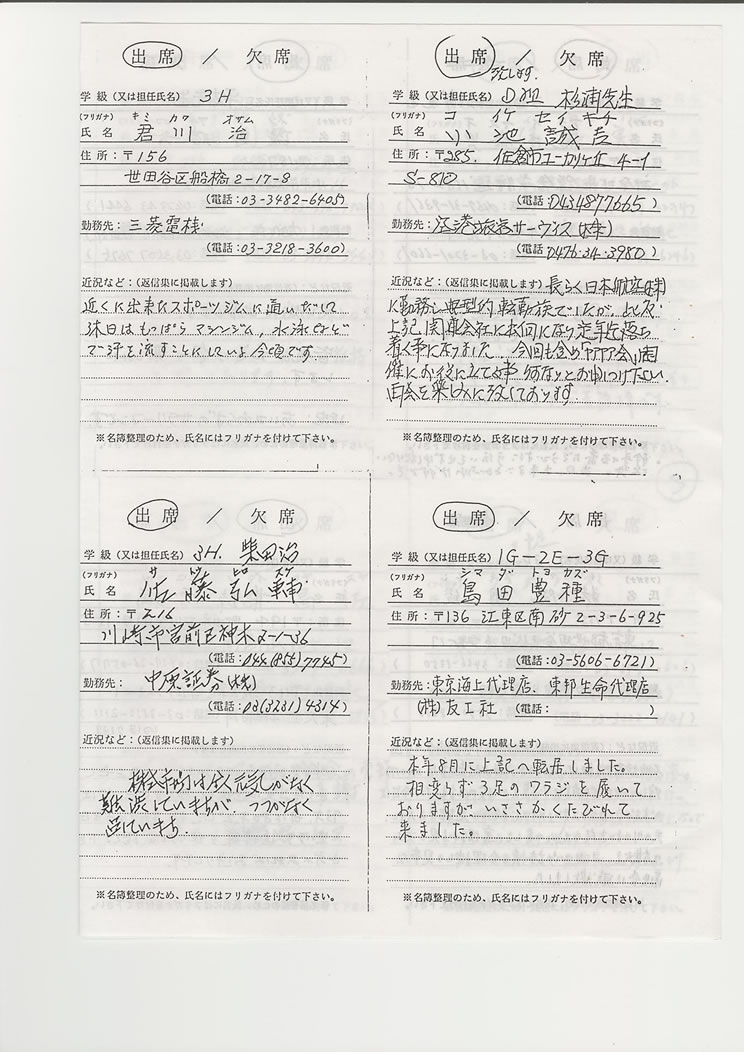 出席 / 欠席
学級（又は担任氏名） 3H
（フリガナ） キミ カワ オサム
氏名 君川 治
住所：〒156
世田谷区船橋2-17-8
（電話：03-3482-6405）
勤務先：三菱電機
（電話：03-3218-3600）
近況など：（返信集に掲載します）
近くに出来たスポーツジムに通いだして
休日はもっぱらマシンジム，水泳などと
で汗を流すことにしている今頃です
※名簿整理のため、氏名にはフリガナを付けて下さい。
出席 / 欠席
致します．
学級（又は担任氏名） D組 杉浦先生
（フリガナ） コ イケ セイ キチ
氏名 小池 誠吉
住所：〒285. 佐倉市ユーカリケ丘 4-1
S-810
（電話 0434877665）
勤務先：空港 サーヴィス（株）
（電話 0476-34-3980）
近況など：（返信集に掲載します） 長らく日本航空（株）
に勤務し典型的転勤族でしたが，
上記関連会社に出向になり定年迄落ち
着く事になりました 今回も含め 会の開
催にお役に立てる事 何なりとお申しつけ下さい
再会を楽しみに致しております
※名簿整理のため、氏名にはフリガナを付けて下さい。
出席 / 欠席
学級（又は担任氏名） 3H. 柴田治
（フリガナ） サ トウ ヒロ スケ
氏名 佐藤 弘輔
住所：〒216
川崎市宮前区神木2-1-36
（電話：044(855)7745）
勤務先： 中原証券（株）
（電話：03(3231)4314）
近況など：（返信集に掲載します）
株式市場は全く元気がなく
難渋していますが．つつがなく
過しています．
※名簿整理のため、氏名にはフリガナを付けて下さい。
出席 / 欠席
学級（又は担任氏名） 1G-2E-3G
（フリガナ） シマ ダ トヨ カズ
氏名 島田豊種
住所：〒136 江東区南砂2-3-6-925
（電話：03-5606-6721）
勤務先：東京海上代理店、東邦生命代理店
（株）友工社 （電話： ）
近況など：（返信集に掲載します）
本年8月に上記へ転居しました。
相変らず3足のワラジを履いて
おりますが、いささかくたびれて
来ました。
※名簿整理のため、氏名にはフリガナを付けて下さい。